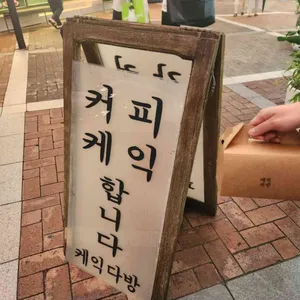 커피
케익
합니다
케익다방